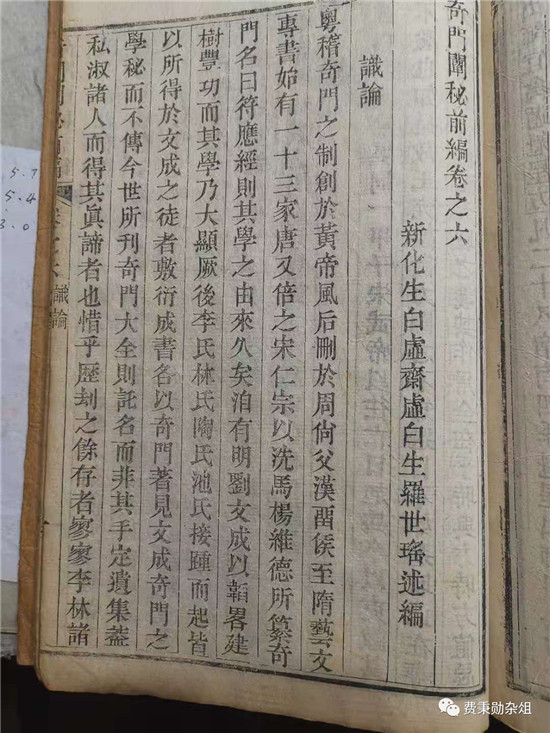 奇門闡秘前編卷之六
新化生白虛齋虛白生羅世瑤述編
識論
粵稽奇門之制創於黃帝風后刪於周尙父漢畱侯至隋藝文
專書始有一十三家唐又倍之宋仁宗以洗馬楊維德所纂奇
門名曰符應經則其學之由來久矣洎有明劉文成以韜畧建
樹豐功而其學乃大顯厥後李氏林氏陶氏池氏接踵而起皆
以所得於文成之徒者敷衍成書名以奇門著見文成奇門之
學秘而不傳今世所刋奇門大全則託名而非其手定遺集蓋
私淑諸人而得其眞諦者也惜乎歷刦之餘存者寥寥李林諸
識論
5.7
5.4
3.0
费秉勋杂俎